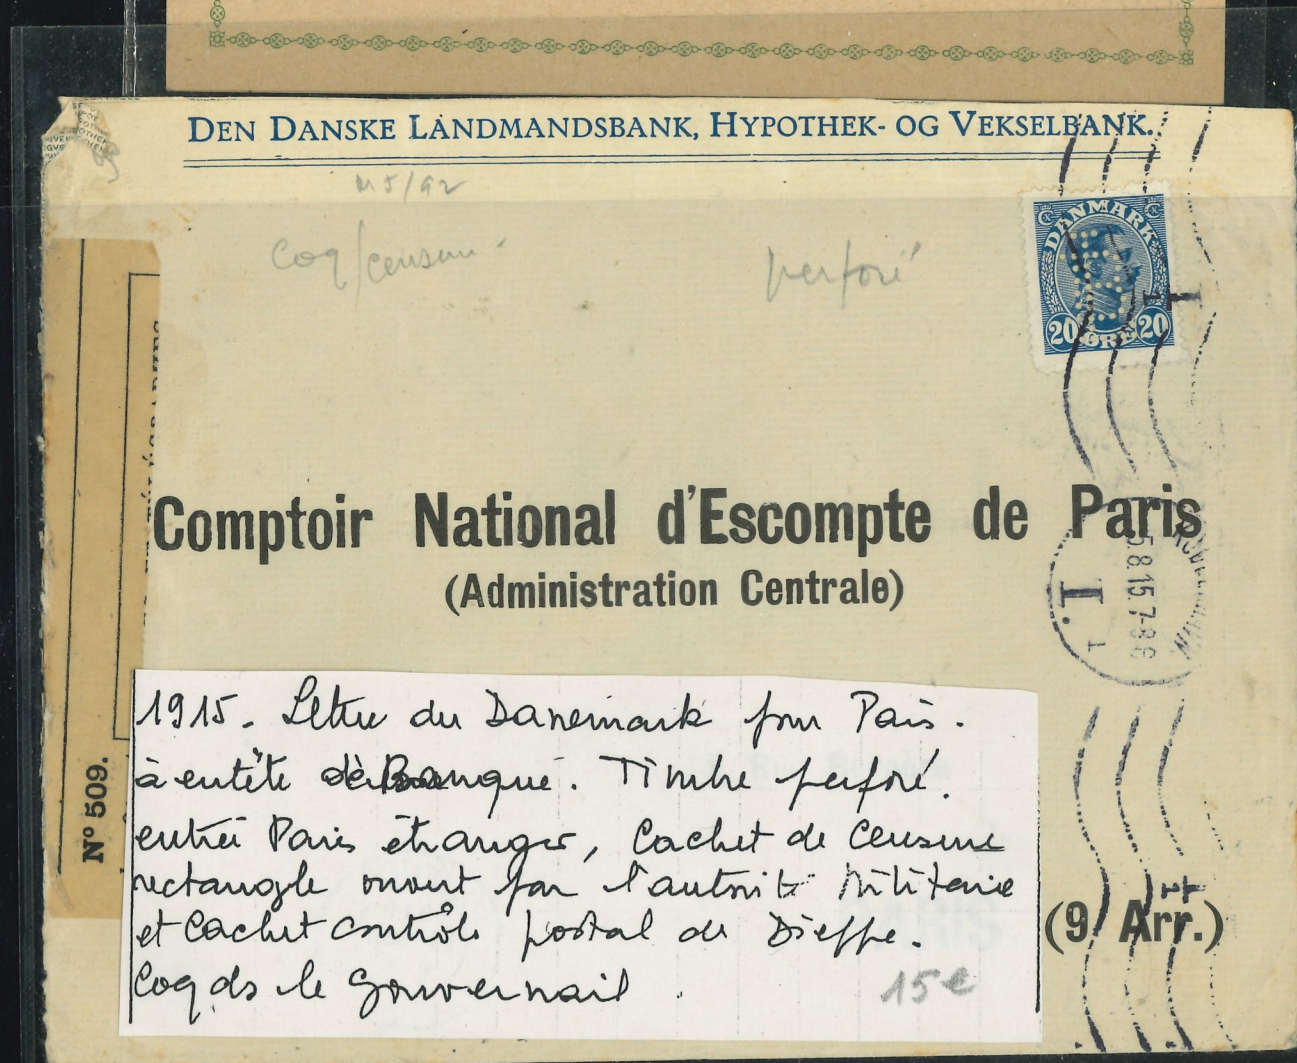 DEN DANSKE LANDMANDSBANK, HYPOTHEK- OG VEKSELBANK.
coq/censure
perforé
DANMARK
20 ØRE 20
Comptoir National d'Escompte de Paris
(Administration Centrale)
5.8.15.7-8 E
1
Nº 509.
1915. Lettre du Danemark pour Paris.
à entête de Banque. Timbre perforé.
entrée Paris étranger, Cachet de Censure
rectangle ouvert par l'autorité Militaire
et Cachet contrôle postal de Dieppe.
Coq ds le Gouvernail.
15€
(9 Arr.)